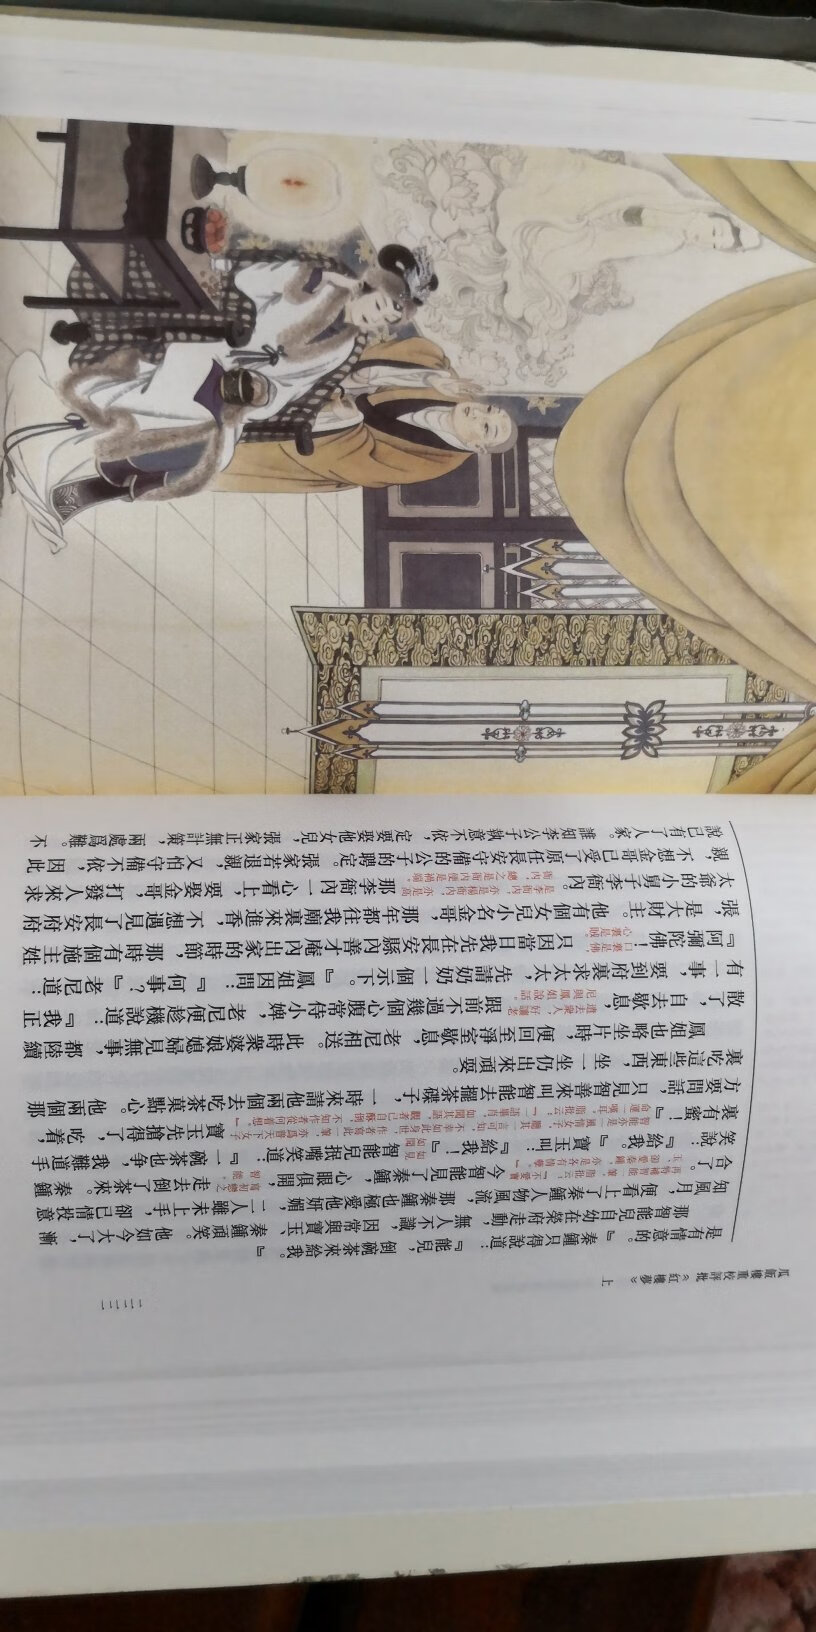 瓜飯樓重校評批《紅樓夢》上
是有情意的。』秦鍾只得說道：『能兒，倒碗茶來給我。』
那智能兒自幼在榮府走動，無人不識，因常與寶玉、秦鍾頑笑。他如今大了，漸
知風月，便看上了秦鍾人物風流，那秦鍾也極愛他妍媚，二人雖未上手，卻已情投意
合了。今智能見了秦鍾，心眼俱開，走去倒了茶來。秦鍾
笑說：『給我。』寶玉叫：『給我！』如見如聞智能兒抿嘴笑道：『一碗茶也爭，我難道手
裏有蜜！』寶玉先搶得了，吃着，
方要問話，只見智善來叫智能去擺茶碟子，一時來請他兩個去吃茶菓點心。他兩個那
裏吃這些東西，坐一坐仍出來頑耍。
鳳姐也略坐片時，便回至淨室歇息，老尼相送。此時衆婆娘媳婦見無事，都陸續
散了，自去歇息，跟前不過幾個心腹常侍小婢，老尼便趁機說道：『我正
有一事，要到府裏求太太，先請奶奶一個示下。』鳳姐因問：『何事？』老尼道：
『阿彌陀佛！口裏是佛，心裏是賊只因當日我先在長安縣內善才庵內出家的時節，那時有個施主姓
張，是大財主。他有個女兒小名金哥，那年都往我廟裏來進香，不想遇見了長安府府
太爺的小舅子李衙內。那李衙內一心看上，要娶金哥，打發人來求
親，不想金哥已受了原任長安守備的公子的聘定。張家若退親，又怕守備不依，因此
說已有了人家。誰知李公子執意不依，定要娶他女兒，張家正無計策，兩處爲難。不